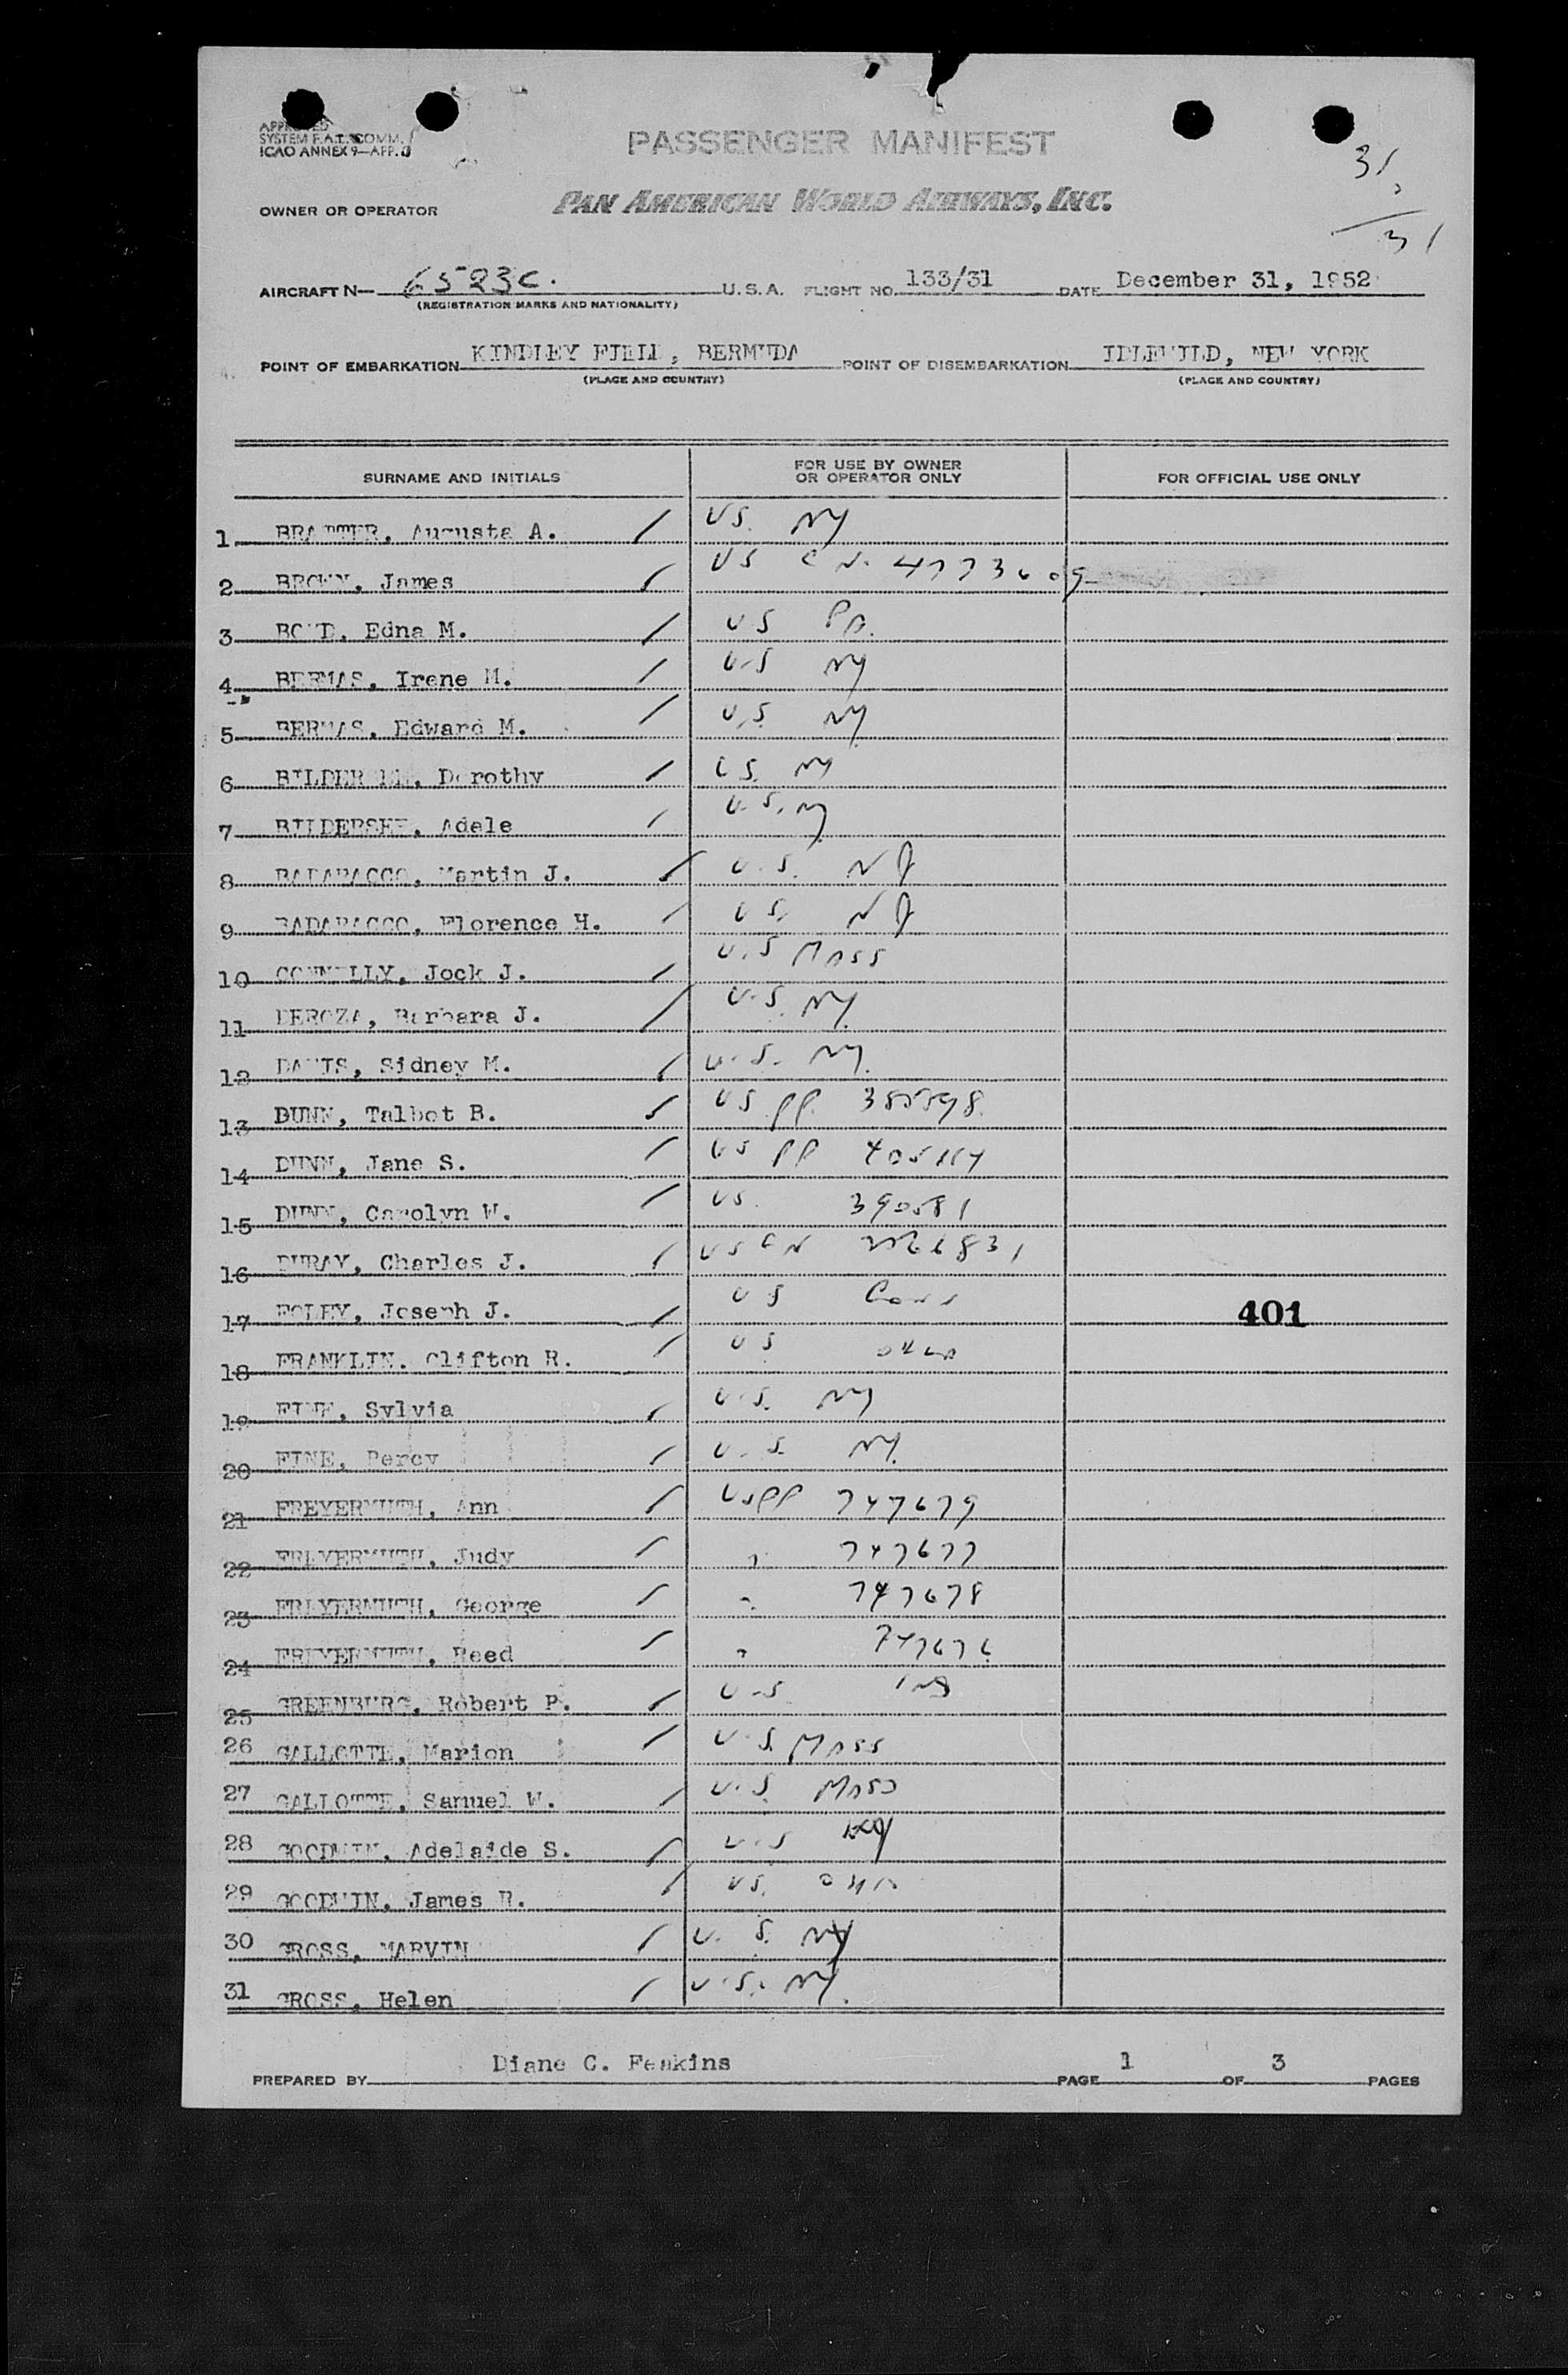 APPROVED
SYSTEM F.A.L. COMM.
ICAO ANNEX 9—APP.
PASSENGER MANIFEST
31
31
OWNER OR OPERATOR PAN AMERICAN WORLD AIRWAYS, INC.
AIRCRAFT N— 6523C. U.S.A. FLIGHT NO. 133/31 DATE December 31, 1952
(REGISTRATION MARKS AND NATIONALITY)
POINT OF EMBARKATION KINDLEY FIELD, BERMUDA POINT OF DISEMBARKATION IDLEWILD, NEW YORK
(PLACE AND COUNTRY) (PLACE AND COUNTRY)
SURNAME AND INITIALS FOR USE BY OWNER OR OPERATOR ONLY FOR OFFICIAL USE ONLY
1 BRATTER, Augusta A. / US. NY
2 BROWN, James / US C N.
3 BOYD, Edna M. / US PA.
4 BERMAS, Irene M. / U.S NY
5 BERMAS, Edward M. / U.S. NY
6 BILDERSEE, Dorothy / US. NY
7 BILDERSEE, Adele / U.S. NY
8 BADARACCO, Martin J. / U.S. NJ
9 BADARACCO, Florence H. / US. NJ
10 CONNELLY, Jock J. / U.S MASS
11 DEROZA, Barbara J. / U.S. NY.
12 DAVIS, Sidney M. / U.S. NY.
13 DUNN, Talbot B. / US PP.
14 DUNN, Jane S. / US PP
15 DUNN, Carolyn W. / US. 390581
16 DURAY, Charles J. / US CN
17 FOLEY, Joseph J. / US 401
18 FRANKLIN, Clifton R. / US
19 FINE, Sylvia / U.S. NY
20 FINE, Percy / U.S. NY.
21 FREYERMUTH, Ann / US PP 747679
22 FREYERMUTH, Judy / " 747677
23 FREYERMUTH, George / " 747678
24 FREYERMUTH, Reed / " 747676
25 GREENBURG, Robert P. / U.S
26 GALLOTTE, Marion / U.S. MASS
27 GALLOTTE, Samuel W. / U.S. MASS
28 GOODWIN, Adelaide S. / U.S
29 GOODWIN, James R. / US. OHIO
30 GROSS, MARVIN / U.S. NY
31 GROSS, Helen / U.S. NY.
PREPARED BY Diane C. Feakins PAGE 1 OF 3 PAGES